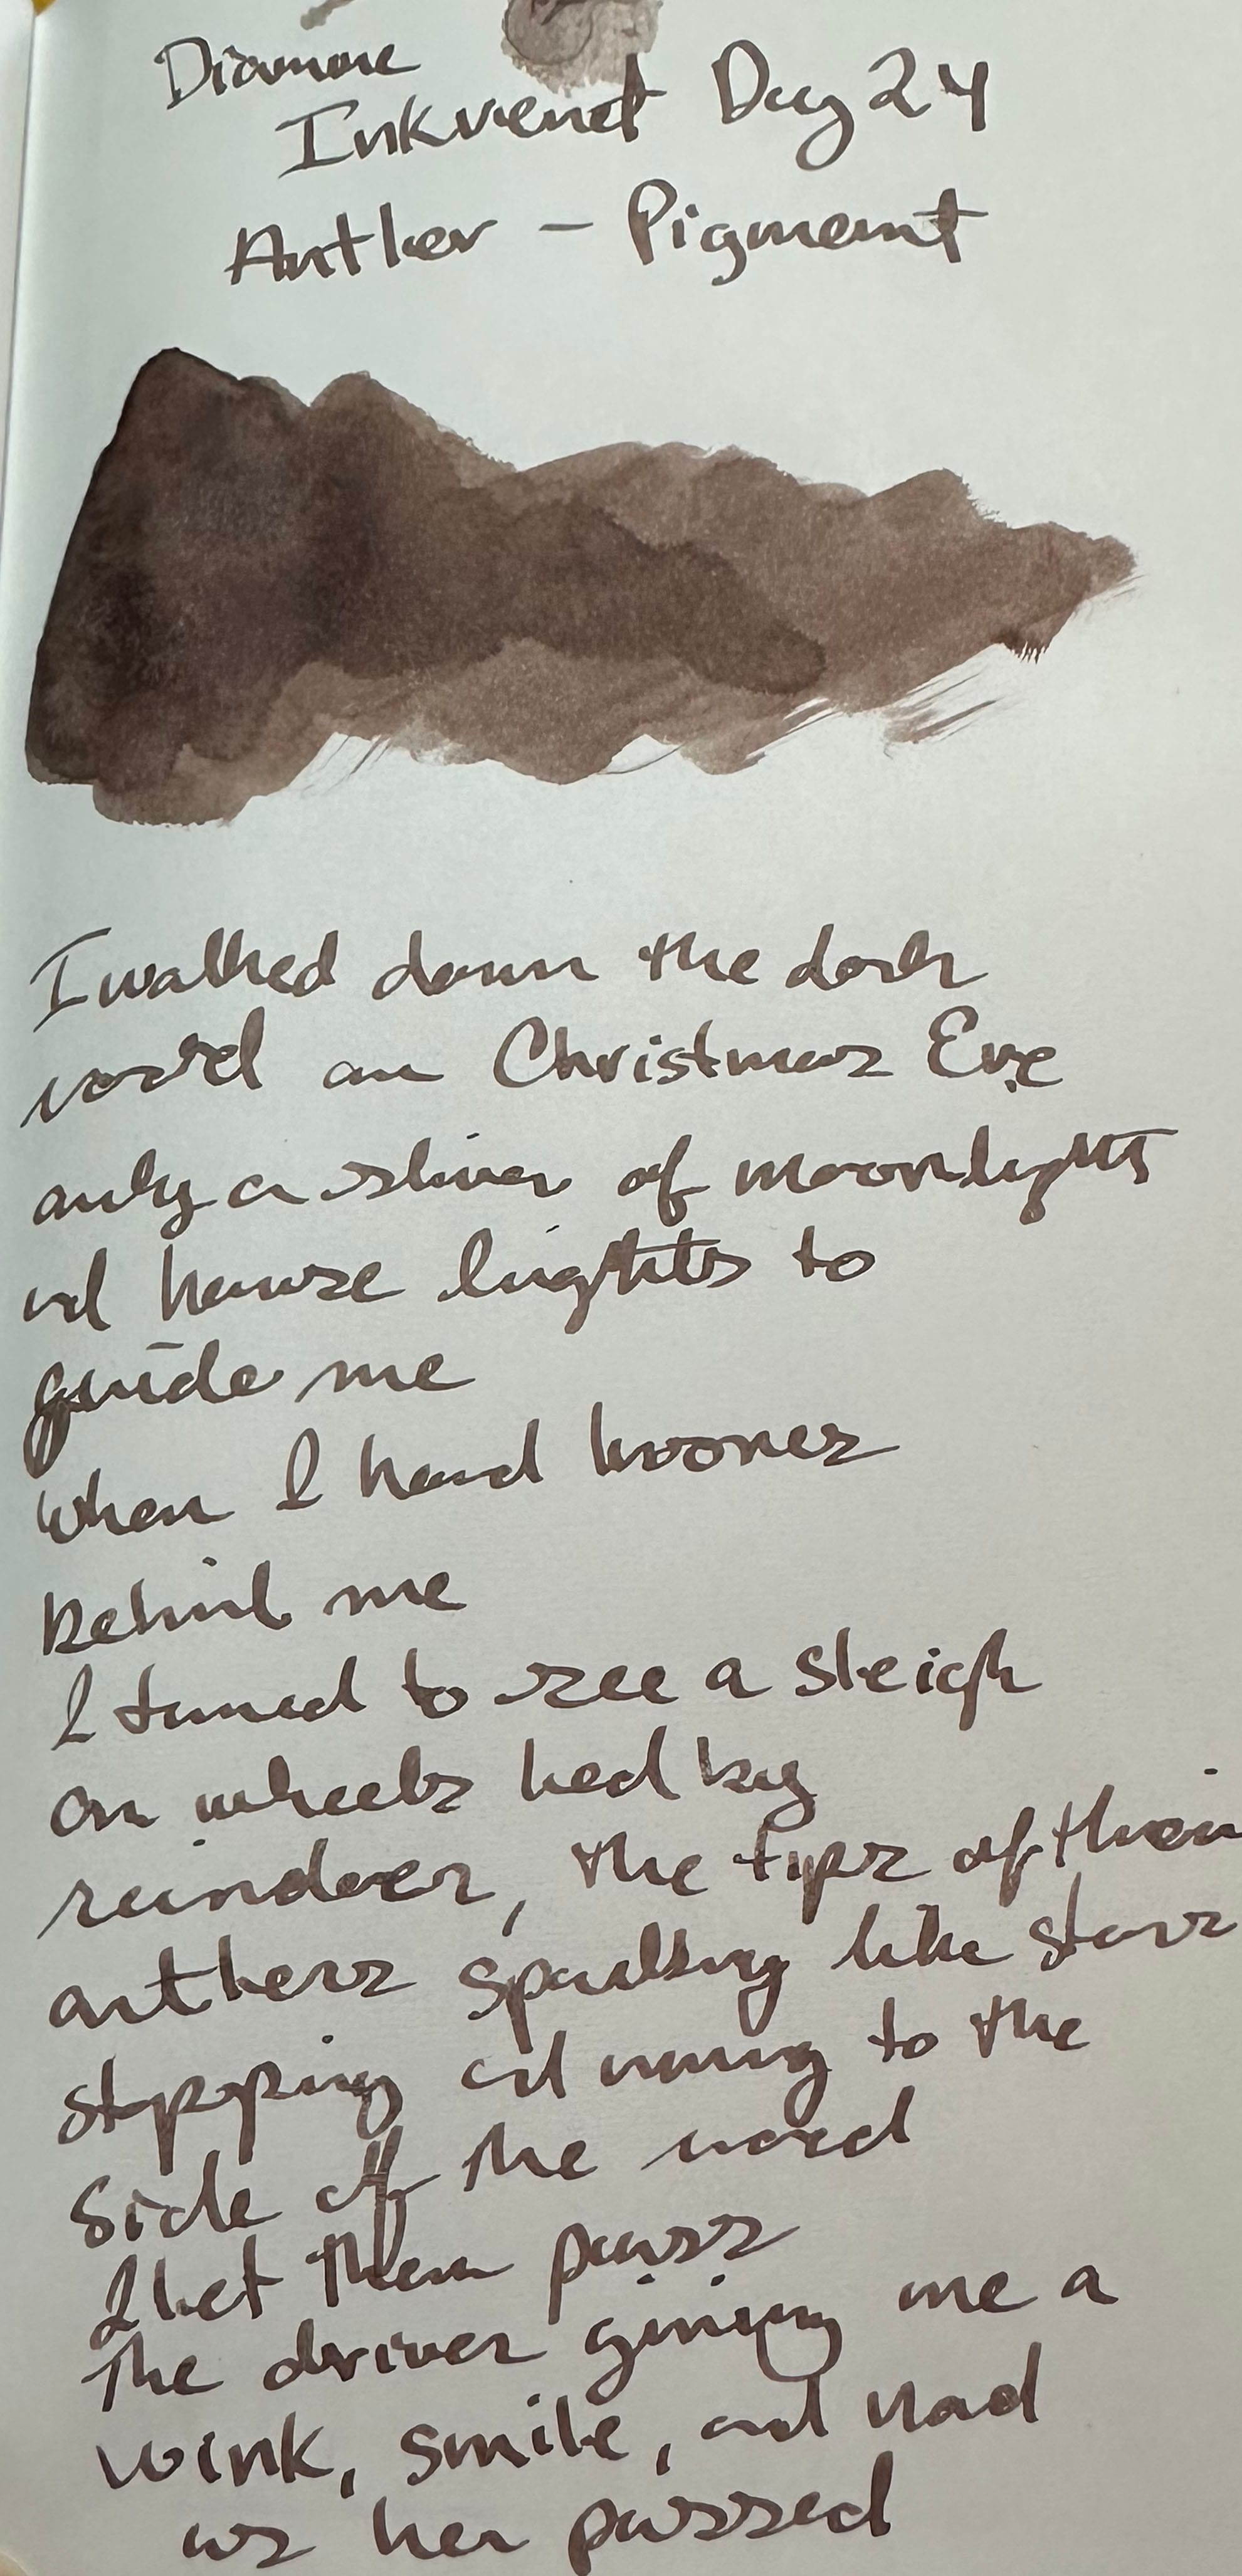 Diamine
Inkvent Day 24
Antler - Pigment
I walked down the dark
road on Christmas Eve
only a sliver of moonlight
and house lights to
guide me
when I heard hooves
behind me
I turned to see a sleigh
on wheels led by
reindeer, the tips of their
antlers sparkling like stars
stepping and moving to the
side of the road
I let them pass
The driver giving me a
wink, smile, and nod
as he passed